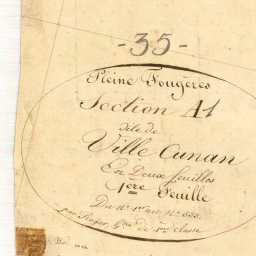 -35-
Pleine Fougères
Section A1
dite de
Ville Cunan
En Deux feuilles
1ère Feuille
Du N° 1er au N°
par de 1ère classe